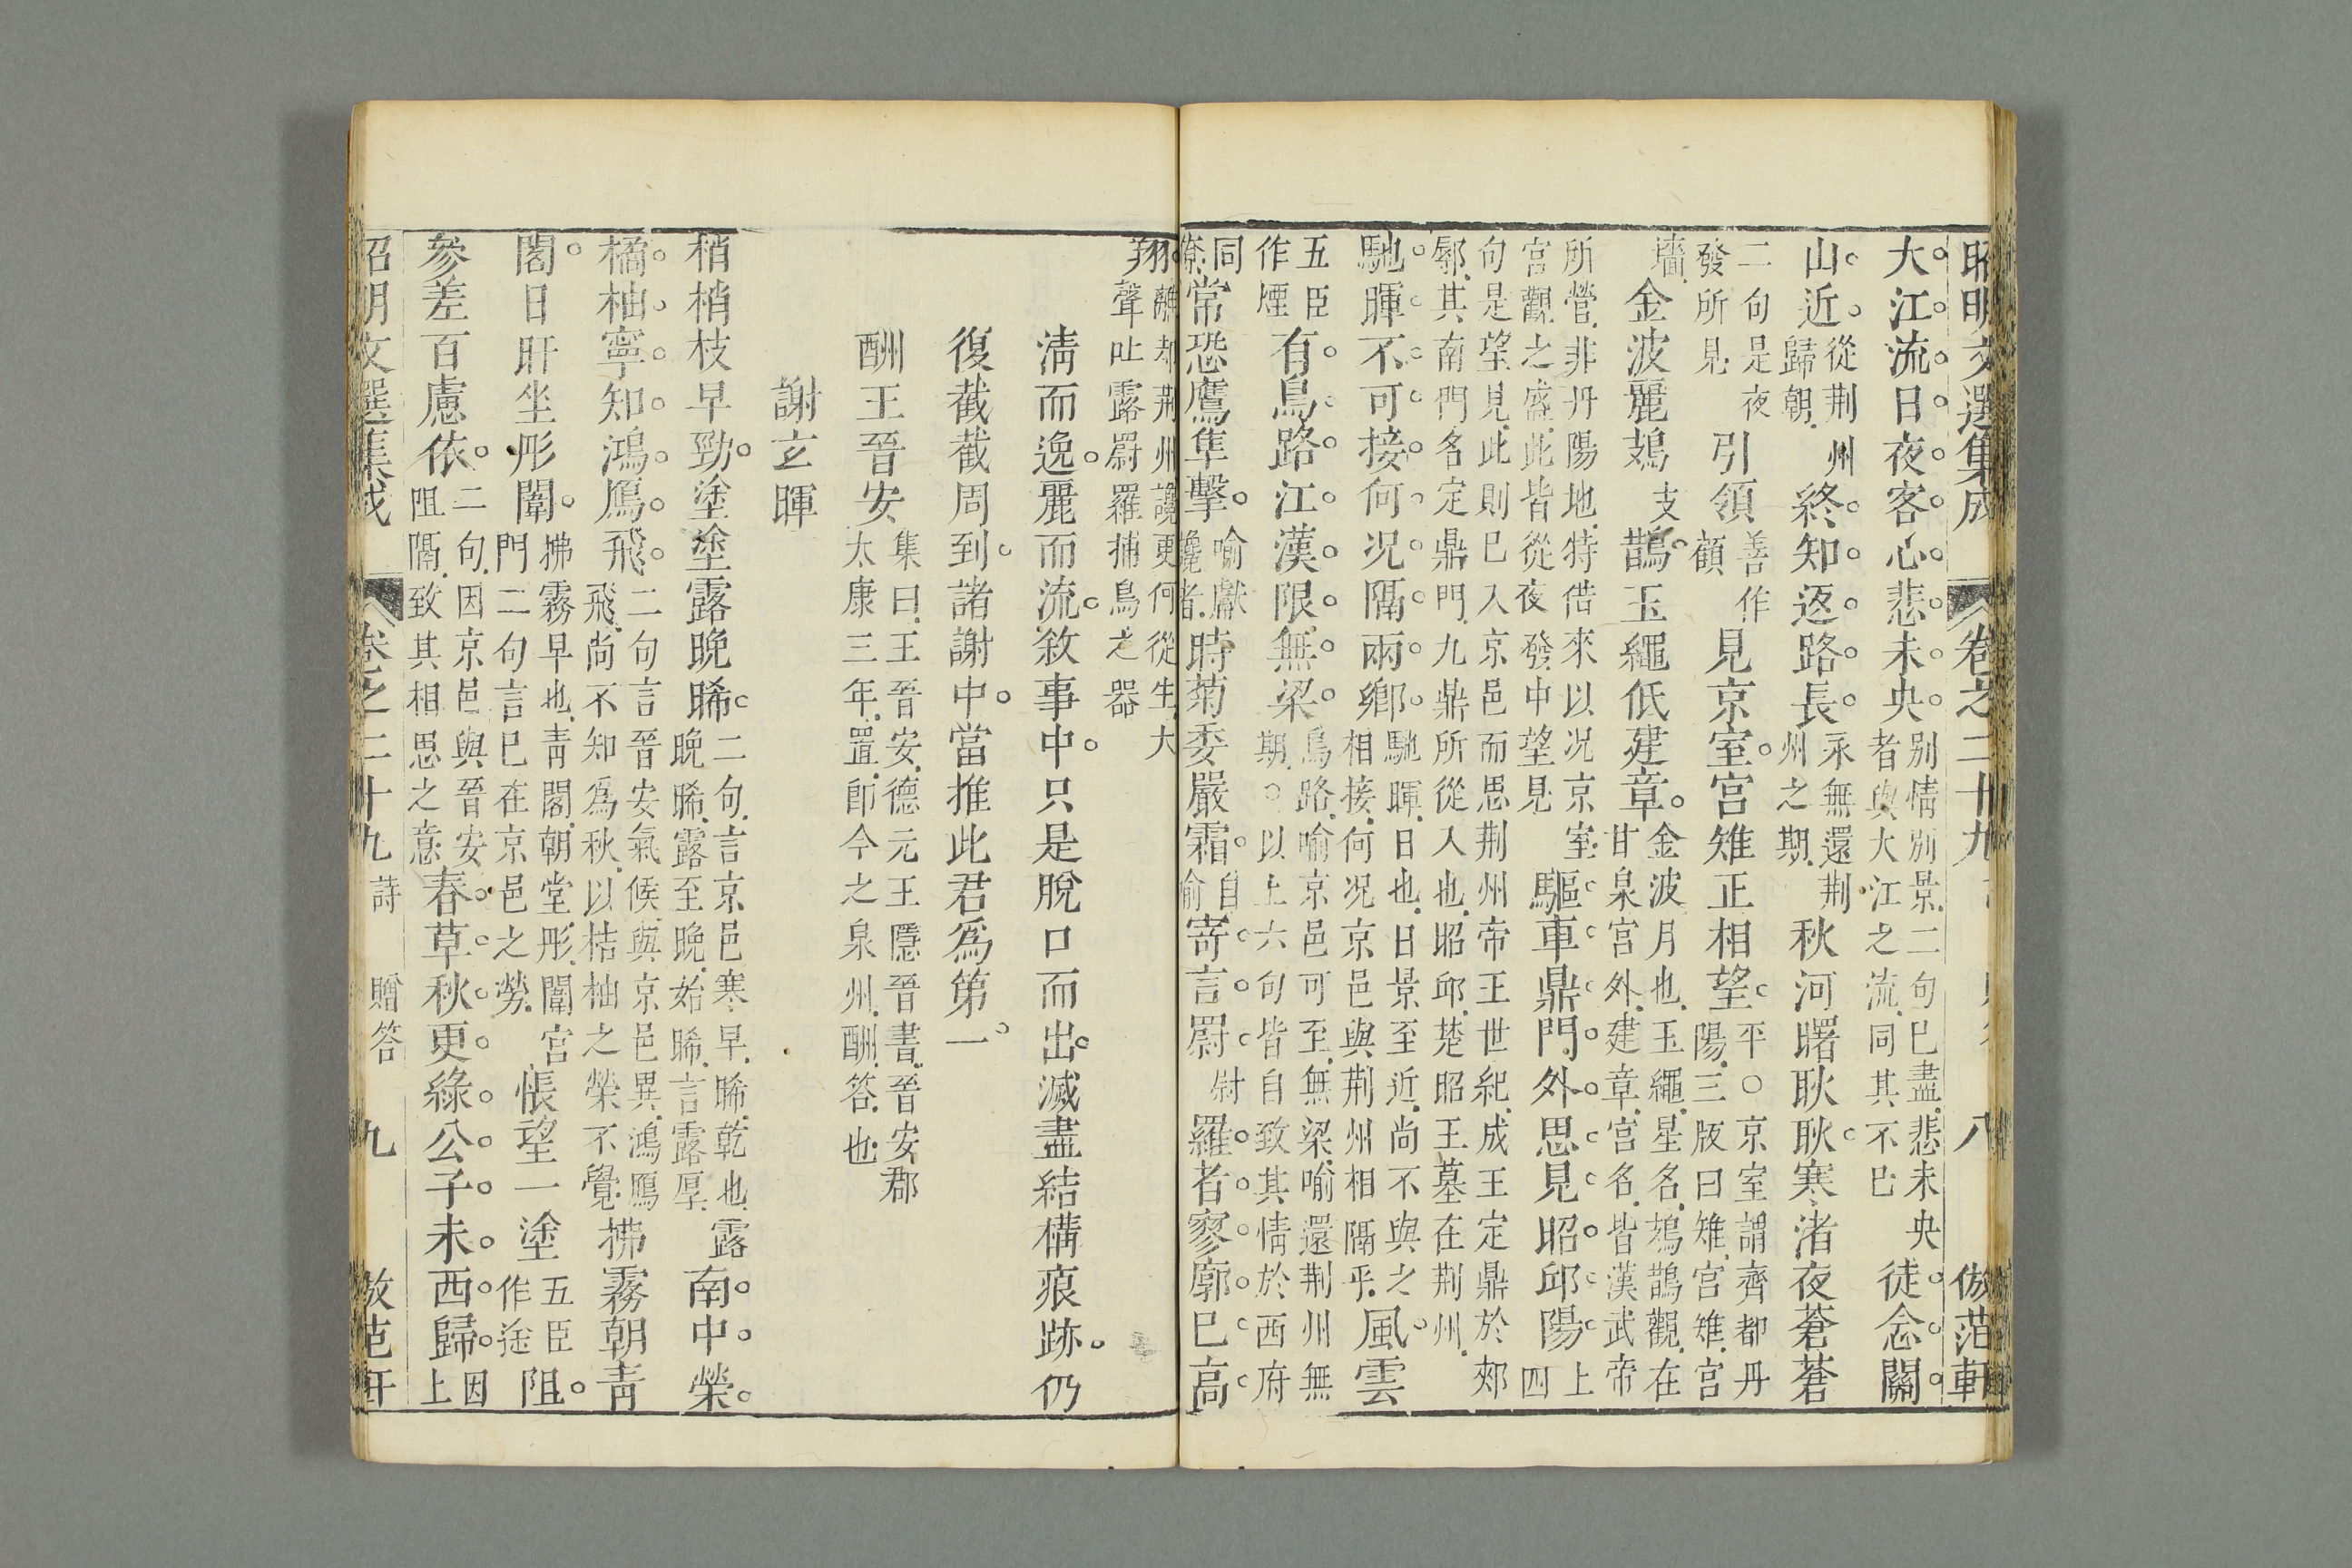 昭明文選集成 卷之二十九 八 倣范軒
大江流日夜客心悲未央別情別景二句已盡悲未央者與大江之流同其不已徒念關
山近從荆州歸朝終知返路長永無還荆州之期秋河曙耿耿寒渚夜蒼蒼
二句是夜發所見引領善作顧見京室宮雉正相望平○京室謂齊都丹陽三版曰雉宮雉宮
墻金波麗鳷支鵲玉繩低建章金波月也玉繩星名鳷鵲觀在甘泉宮外建章宮名皆漢武帝
所營非丹陽地特借來以况京室宮觀之盛此皆從夜發中望見驅車鼎門外思見昭邱陽上四
句是望見此則已入京邑而思荆州帝王世紀成王定鼎於郟鄏其南門名定鼎門九鼎所從入也昭邱楚昭王墓在荆州
馳暉不可接何况隔兩鄉馳暉日也日景至近尚不與之相接何况京邑與荆州相隔乎風雲
五臣作煙有鳥路江漢限無梁鳥路喻京邑可至無梁喻還荆州無期○以上六句皆自致其情於西府
同僚常恐鷹隼擊喻獻讒者時菊委嚴霜自喻寄言罻尉羅者寥廓已高
翔離却荆州讒更何從生大聲叱露罻羅捕鳥之器
淸而逸麗而流敘事中只是脫口而出滅盡結構痕跡仍
復截截周到諸謝中當推此君爲第一
酬王晉安集曰王晉安德元王隱晉書晉安郡太康三年置卽今之泉州酬答也
謝玄暉
梢梢枝早勁塗塗露晚晞二句言京邑寒早晞乾也露晚晞露至晚始晞言露厚南中榮
橘柚寧知鴻鴈飛二句言晉安氣候與京邑異鴻鴈飛尚不知爲秋以桔柚之榮不覺拂霧朝靑
閣日旰坐彤闈拂霧早也靑閣朝堂彤闈宮門二句言已在京邑之勞悵望一塗五臣作途阻
參差百慮依二句因京邑與晉安阻隔致其相思之意春草秋更綠公子未西歸因上
昭明文選集成 卷之二十九 詩 贈答 九 倣范軒